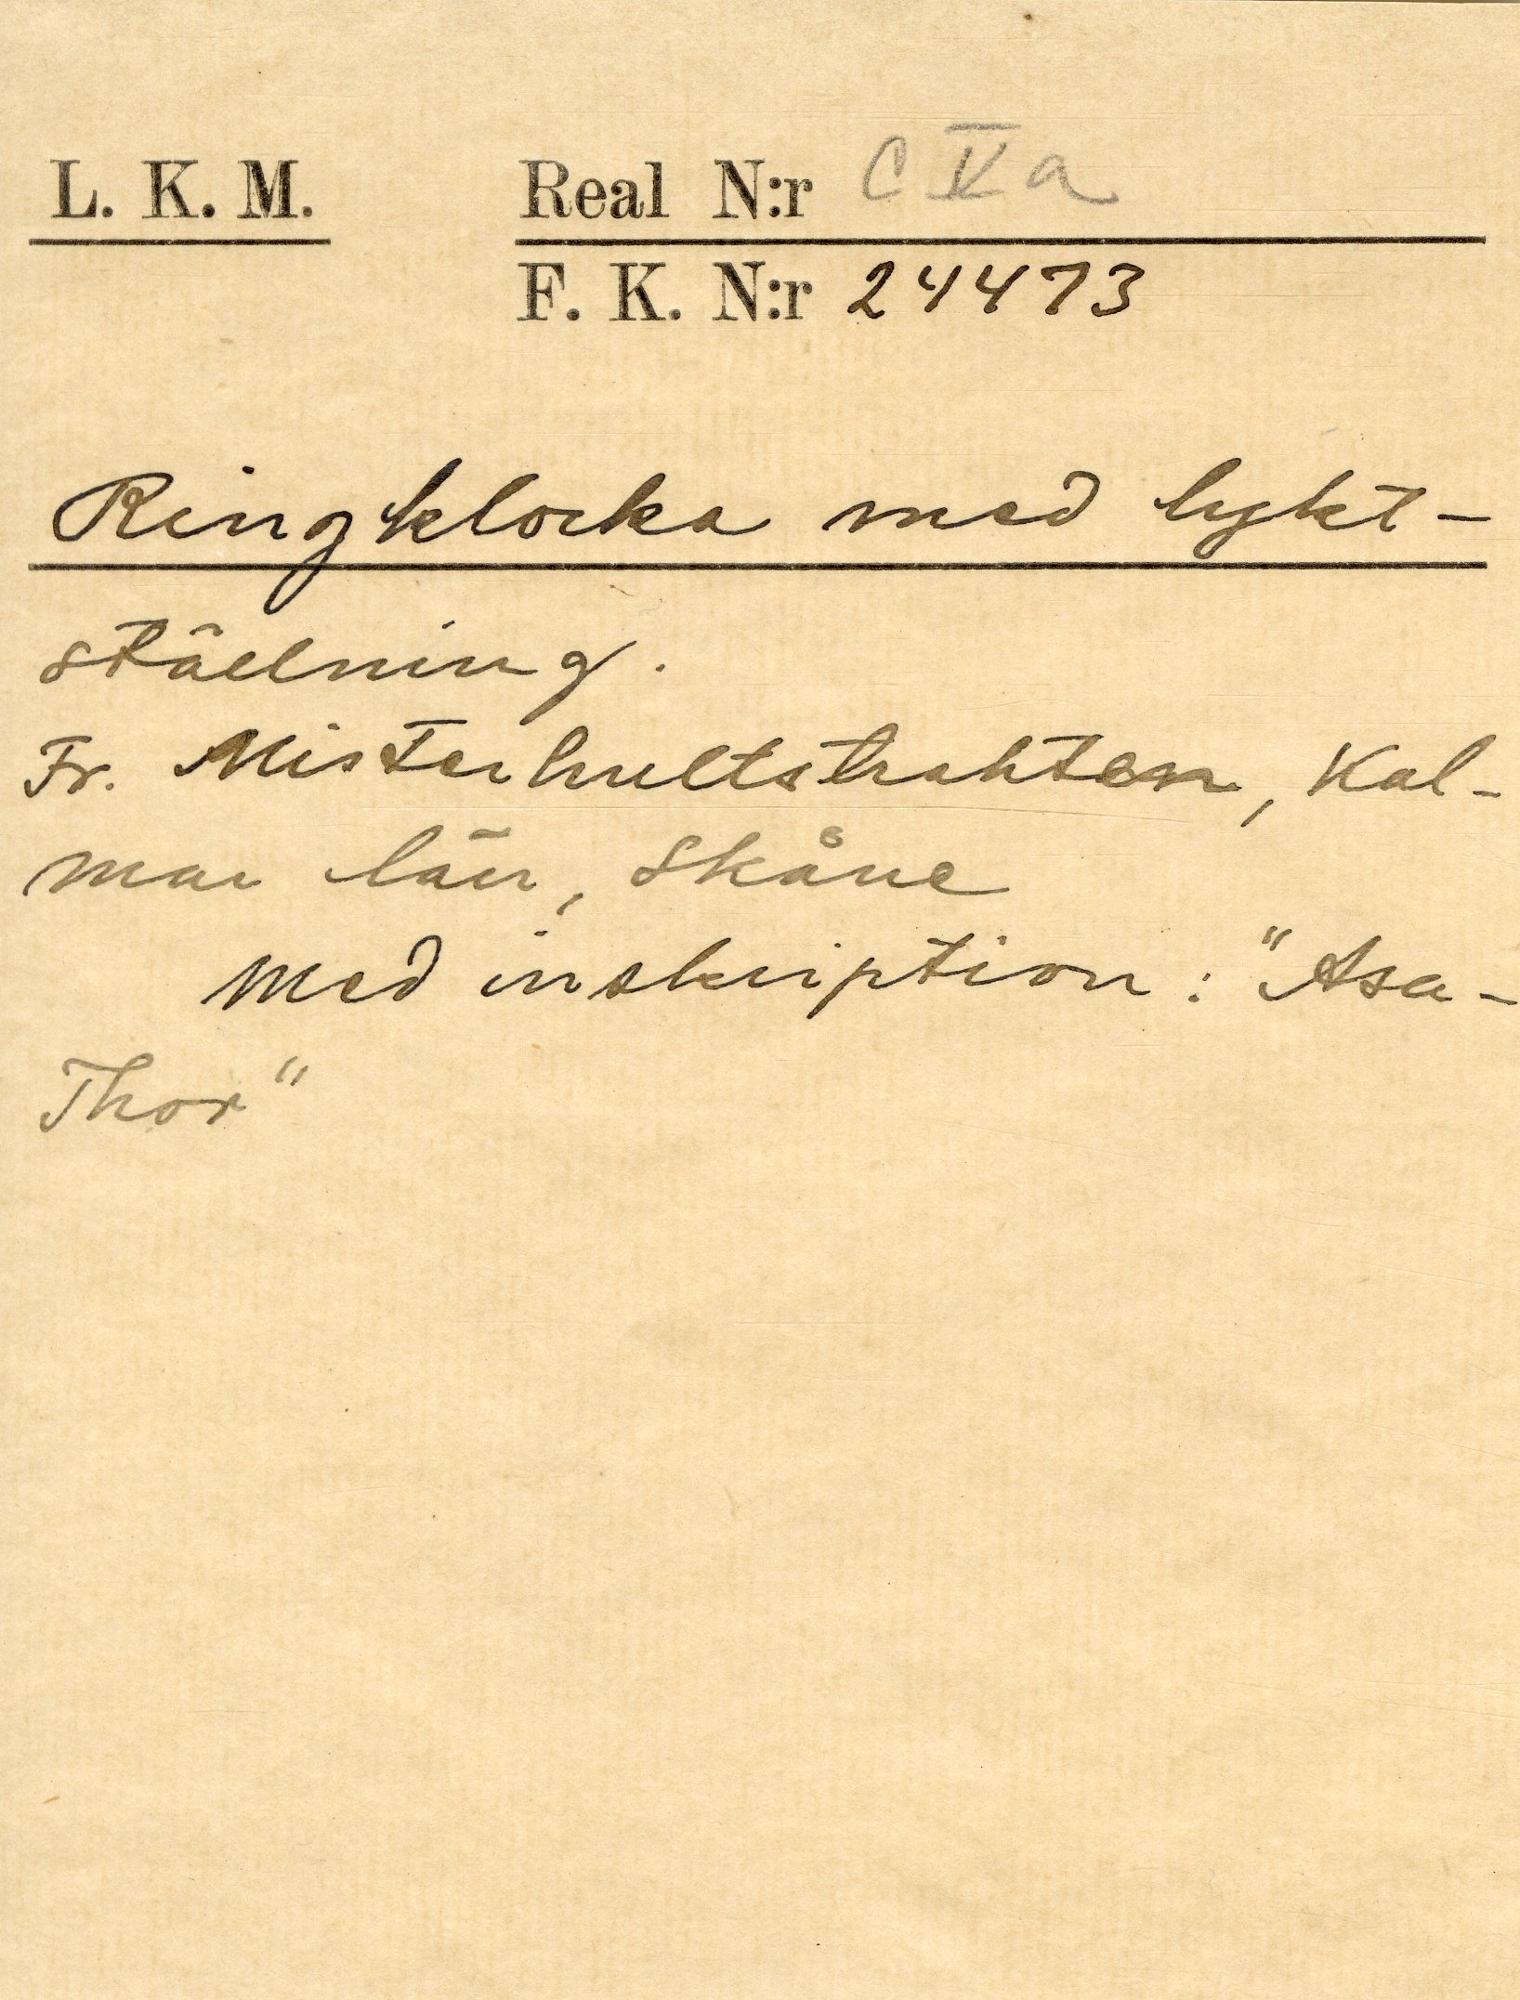 L. K. M. Real N:r C V a
F. K. N:r 24473
Ringklocka med lykt-
ställning.
Fr. Misterhultstrakten, Kal-
mar län, Skåne
med inskription: "Asa-
Thor"